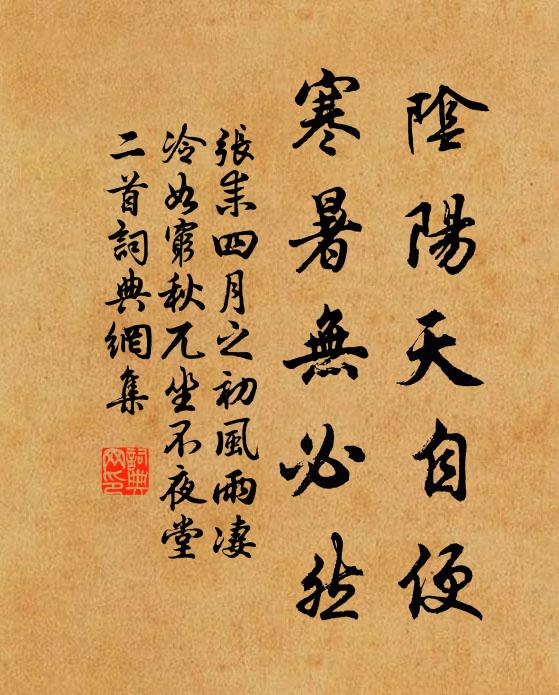 陰陽天自便
寒暑無必然
張耒四月之初風雨凄
冷如窮秋兀坐不夜堂
二首詞典網集
詞典網印